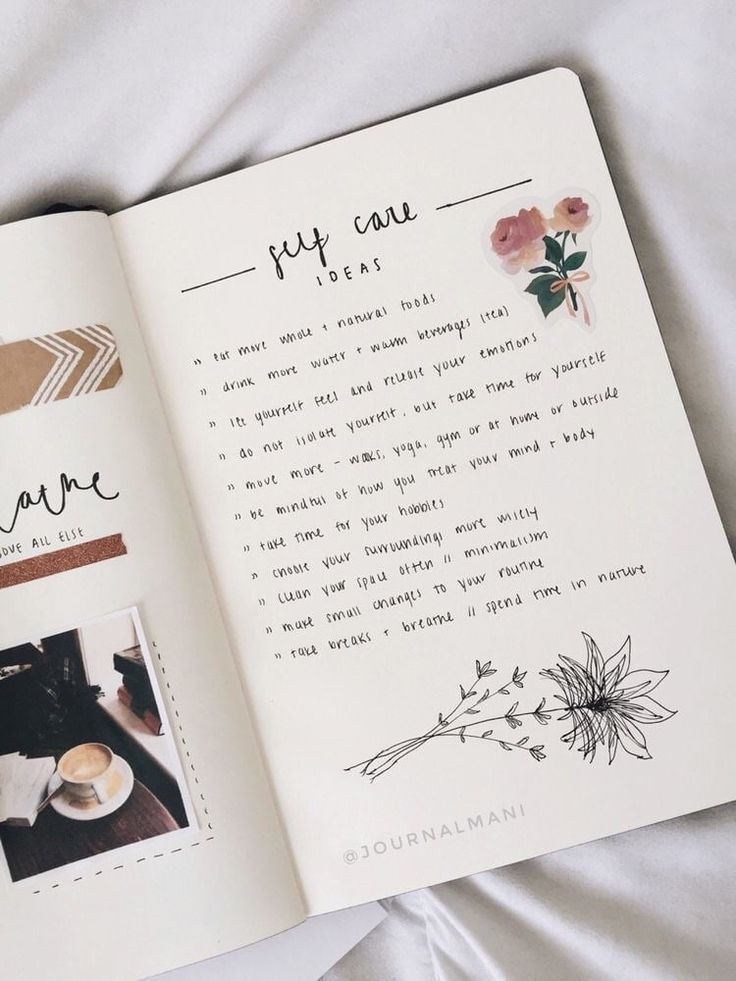 athe
OVE ALL ELSE
self care
IDEAS
» eat more whole + natural foods
» drink more water + warm beverages (tea)
» let yourself feel and release your emotions
» do not isolate yourself, but take time for yourself
» move more - walks, yoga, gym or at home or outside
» be mindful of how you treat your mind + body
» take time for your hobbies
» choose your surroundings more wisely
» clean your space often // minimalism
» make small changes to your routine
» take breaks + breathe // spend time in nature
@JOURNALMANI